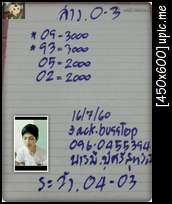 ล่าง. 0-3
*09-3000
*93=3000
05=2000
02=2000
16/7/60
Jack.busstop
096-0455394
ระวัง. 04-03
[450x600] upic.me